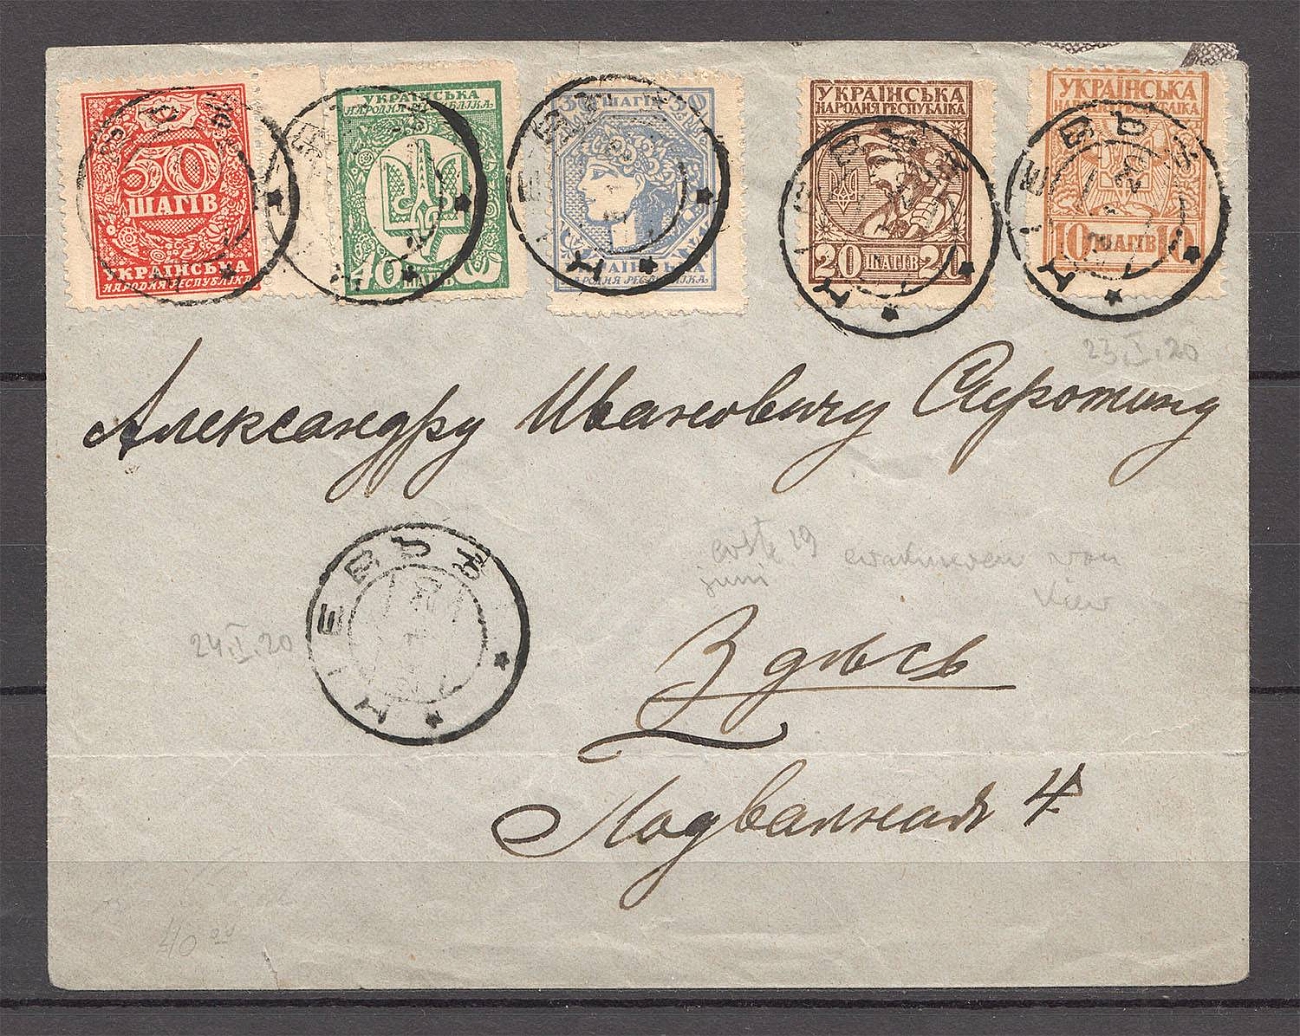 50
ШАГІВ
УКРАЇНСЬКА
НАРОДНЯ РЕСПУБЛІКА
УКРАЇНСЬКА
НАРОДНЯ РЕСПУБЛІКА
40 ШАГІВ
30 ШАГІВ 30
УКРАЇНСЬКА
НАРОДНЯ РЕСПУБЛІКА
УКРАЇНСЬКА
НАРОДНЯ РЕСПУБЛІКА
20 ШАГІВ 20
УКРАЇНСЬКА
НАРОДНЯ РЕСПУБЛІКА
10 ШАГІВ 10
23.I.20
Александру Ивановичу
КІЕВЪ
24.I.20
juni von
Kiew
Здѣсь
Подвальная 4
40